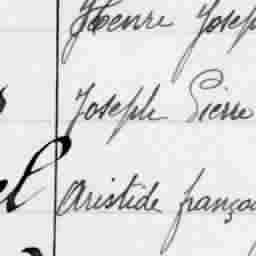 Henre Josep
Joseph Pierre
el Aristide françoi